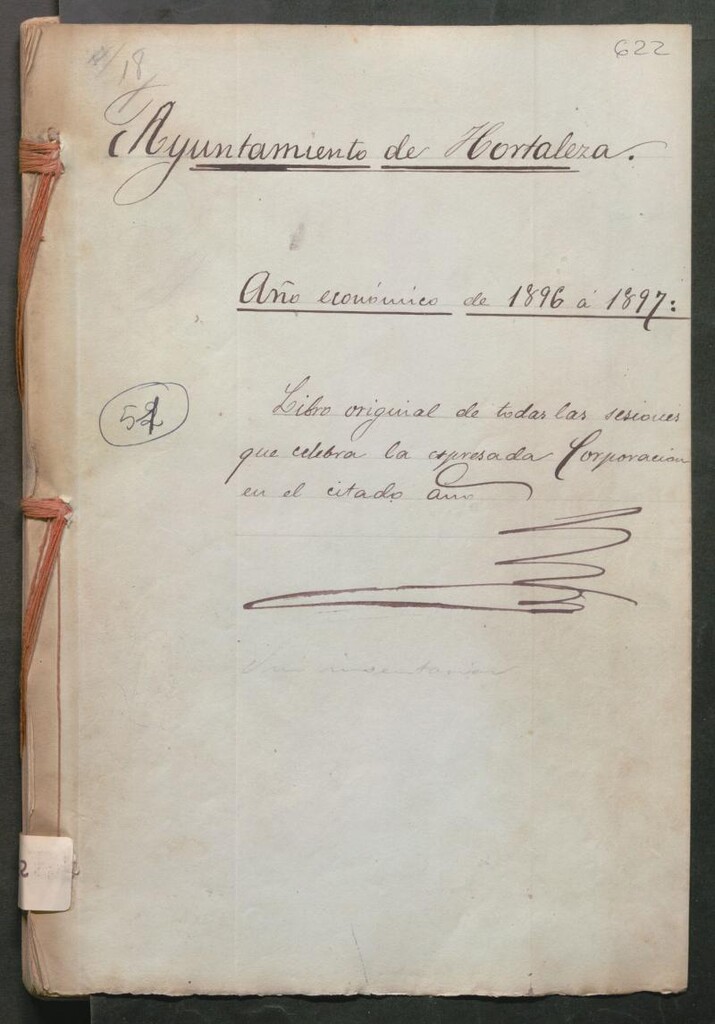 18
622
Ayuntamiento de Hortaleza.
Año económico de 1896 á 1897:
Libro original de todas las sesiones
que celebra la espresada Corporacion
en el citado año
52
Sin inventariar